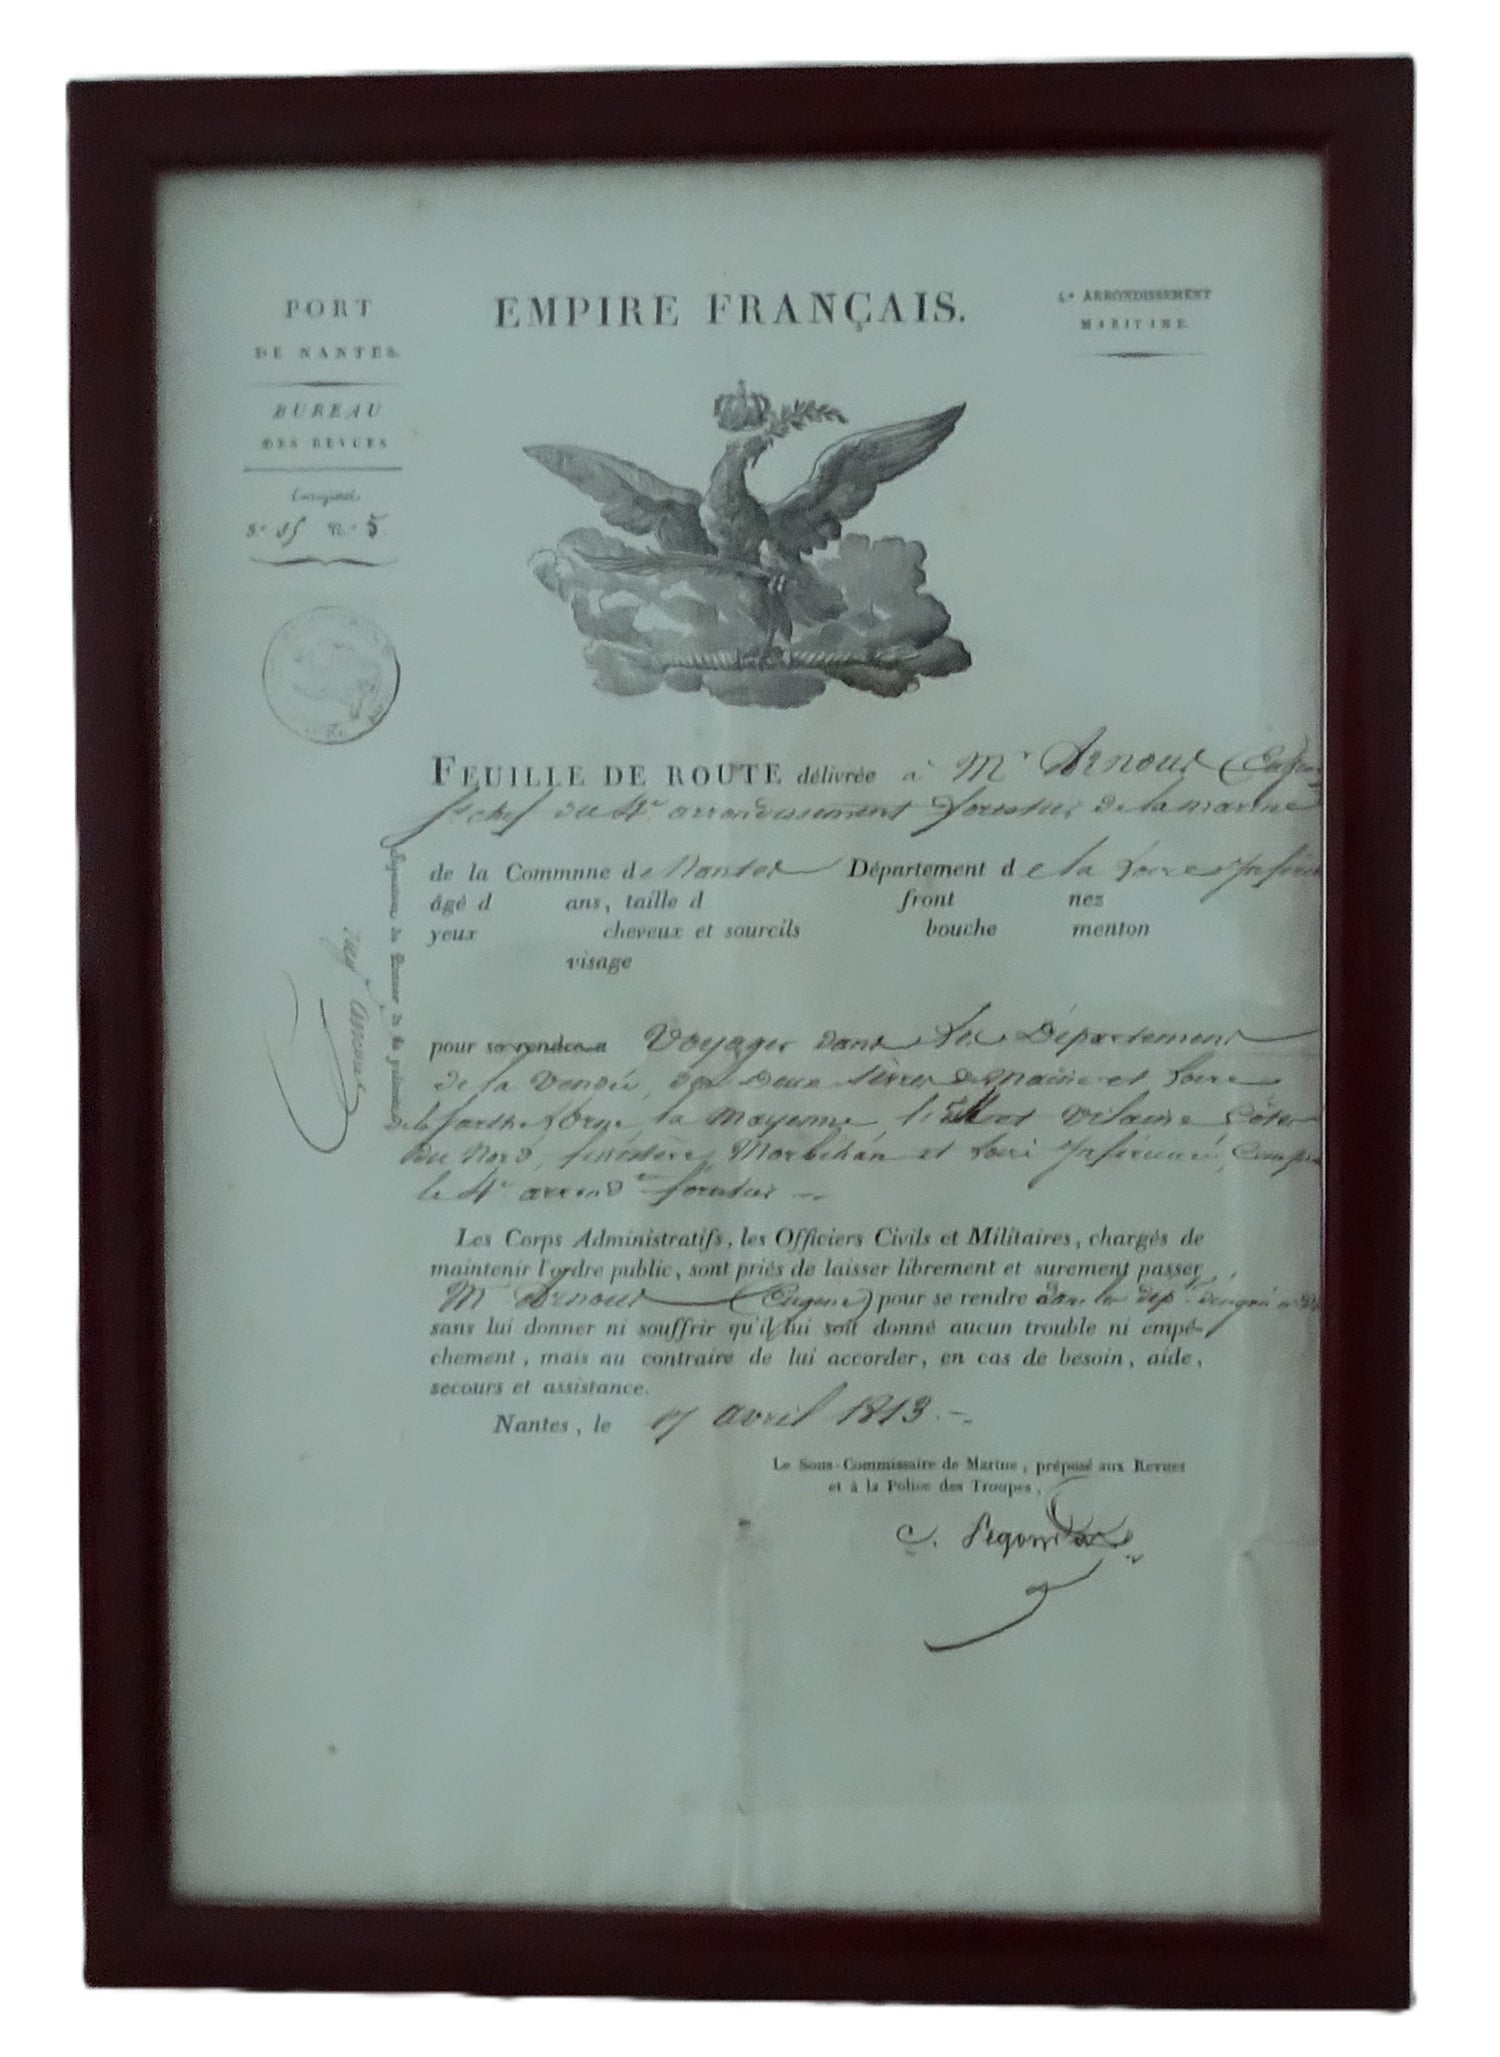 PORT
DE NANTES.
BUREAU
DES REVUES
EMPIRE FRANÇAIS.
4e ARRONDISSEMENT
MARITIME.
Enregistré
n° 5
FEUILLE DE ROUTE délivrée à Mr Arnous (Eugène
chef du 4e arrondissement forestier de la marine
de la Commune de Nantes Département de la Loire Inférieure
âgé d ans, taille d front nez
yeux cheveux et sourcils bouche menton
visage
Signature du Porteur de la présente
Arnous
pour se rendre a Voyager dans les Départements
de la Vendée, des Deux Sèvres de Maine et Loire
de la Sarthe l'Orne, la Mayenne, l'Ille et Vilaine Côtes
du Nord, finistère, Morbihan et Loire Inférieure,
le 4e arrondt forestier
Les Corps Administratifs, les Officiers Civils et Militaires, chargés de
maintenir l'ordre public, sont priés de laisser librement et surement passer
Mr Arnous (Eugene) pour se rendre dans les dépts désignés
sans lui donner ni souffrir qu'il lui soit donné aucun trouble ni empê-
chement, mais au contraire de lui accorder, en cas de besoin, aide,
secours et assistance.
Nantes, le 17 avril 1813.
Le Sous-Commissaire de Marine, préposé aux Revues
et à la Police des Troupes,